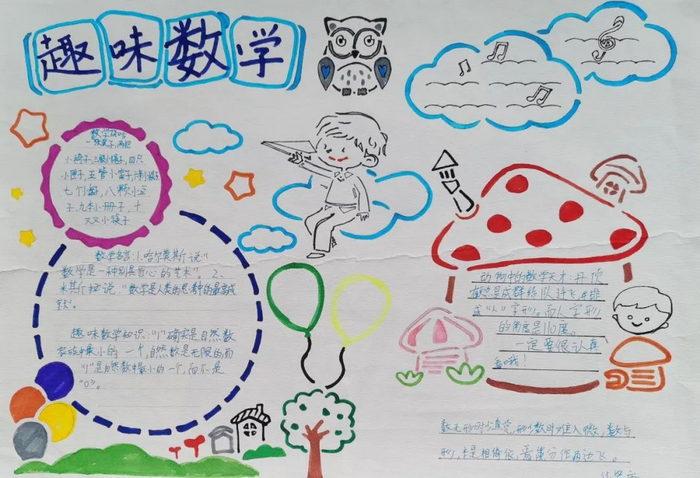 趣味数学
小帽子,四只
七个
数学名言:1.哈尔莫斯说"
数学是一种别具匠心的艺术"。2.
米斯拉说:"数学是人类的思考中的最高成
就"。
趣味数学知识:"1"确实是自然数
数中最小的一个,自然数是无限的而
"1"是自然数中最小的一个,而不是
"0"。
动物中的数学天才.丹顶
鹤总是成群结队迁飞,排
成"人"字形。而人字形
的角度是110度。
一定要很认真
看哦!
数无形时少直觉,形少数时难入微,数与
形,本是相倚依,焉能分作两边飞。